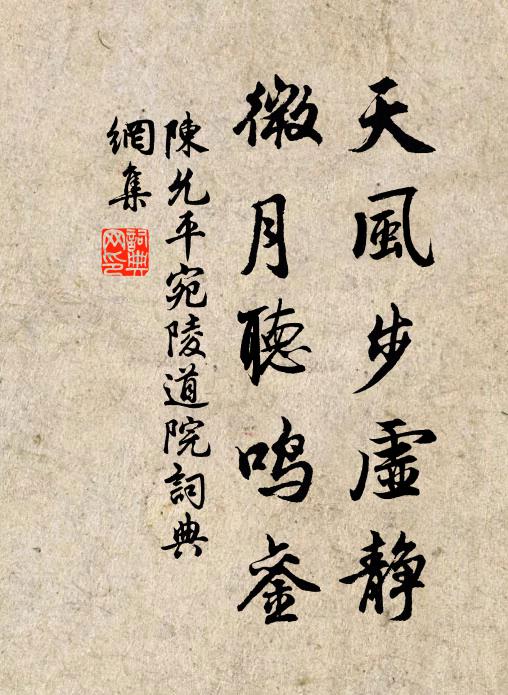 天風步虛靜
微月聽鳴銮
陳允平宛陵道院詞典
網集
詞典
网印